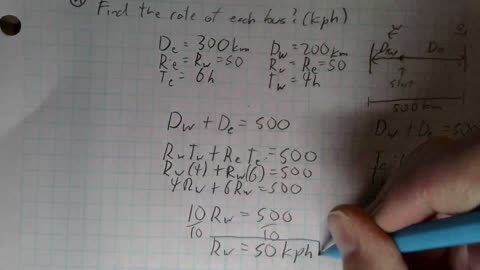 Find the rate of each bus? (kph)
De = 300km
Re = Rw = 50
Te = 6h
Dw = 200km
Rw = Re = 50
Tw = 4h
500km
Dw + De = 500
Dw + De = 500
RwTw + ReTe = 500
Rw(4) + Rw(6) = 500
4Rw + 6Rw = 500
10Rw = 500
10 10
Rw = 50kph